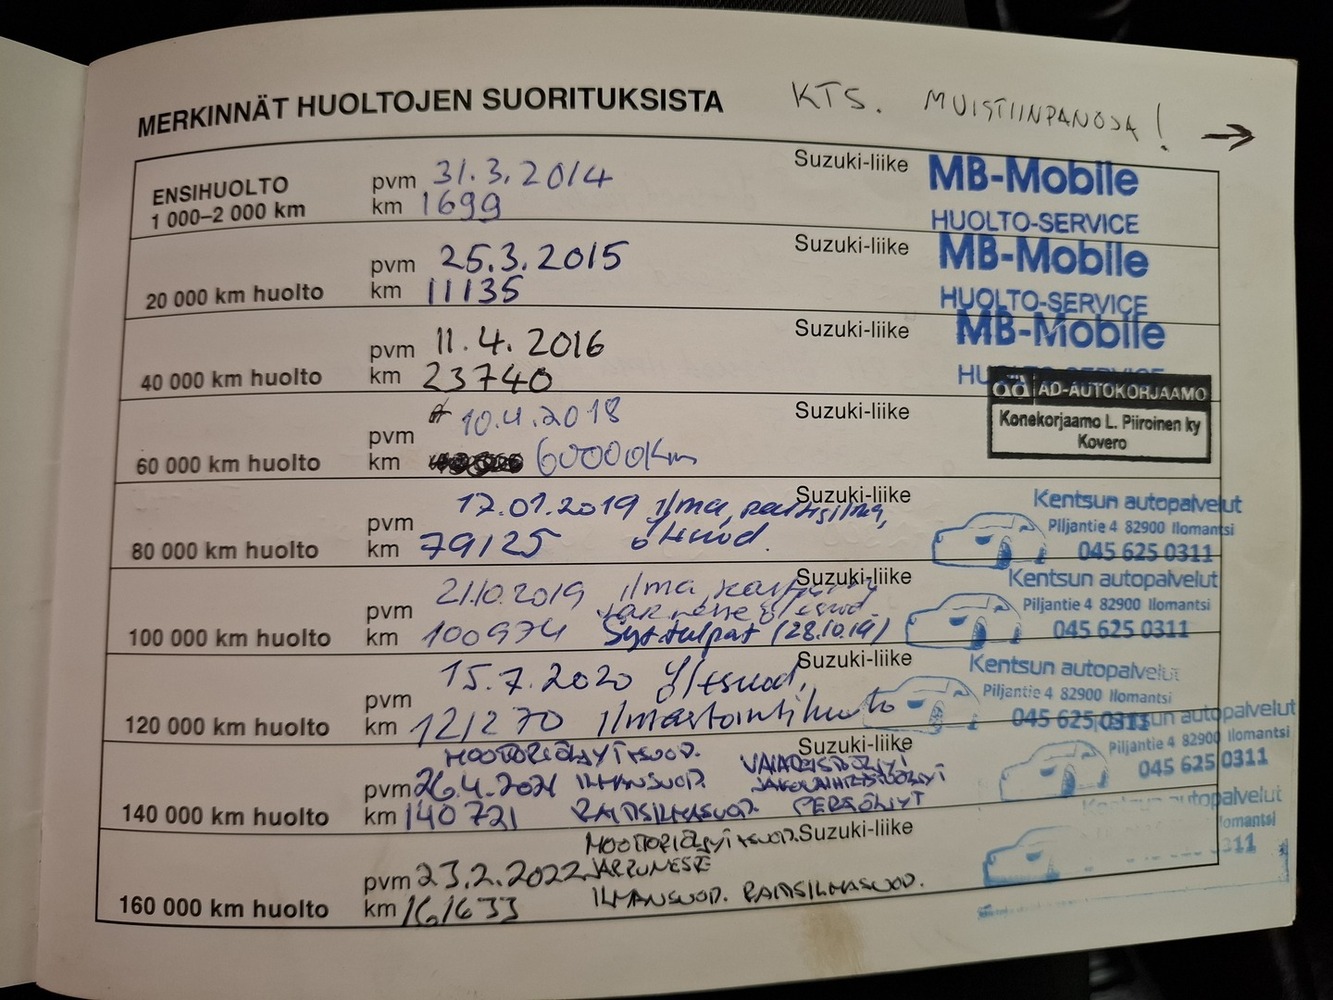 MERKINNÄT HUOLTOJEN SUORITUKSISTA KTS. MUISTIINPANOJA! →
ENSIHUOLTO
1 000–2 000 km
pvm 31.3.2014
km 1699
Suzuki-liike
MB-Mobile
HUOLTO-SERVICE
20 000 km huolto
pvm 25.3.2015
km 11135
Suzuki-liike
MB-Mobile
HUOLTO-SERVICE
40 000 km huolto
pvm 11.4.2016
km 23740
Suzuki-liike
MB-Mobile
HUOLTO-SERVICE
60 000 km huolto
pvm 10.4.2018
km 60000km
Suzuki-liike
ad AD-AUTOKORJAAMO
Konekorjaamo L. Piiroinen ky
Kovero
80 000 km huolto
pvm 17.01.2019 ilma, raitisilma,
km 79125 öltsuod.
Suzuki-liike
Kentsun autopalvelut
Piljantie 4 82900 Ilomantsi
045 625 0311
100 000 km huolto
pvm 21.10.2019 ilma,
km 100974 Syt.tulpat (28.10.19)
Suzuki-liike
Kentsun autopalvelut
Piljantie 4 82900 Ilomantsi
045 625 0311
120 000 km huolto
pvm 15.7.2020 öltsuod,
km 121270 ilmastointihuolto
Suzuki-liike
Kentsun autopalvelut
Piljantie 4 82900 Ilomantsi
045 625 0311
140 000 km huolto
MOOTTORIÖLJYT+SUOD.
pvm 26.4.2021 ILMANSUOD.
km 140721 RAITISILMASUOD. PERÄÖLJYT
Suzuki-liike
Kentsun autopalvelut
Piljantie 4 82900 Ilomantsi
045 625 0311
160 000 km huolto
MOOTTORIÖLJYT+SUOD.
pvm 23.2.2022 JARRUNESTE
km 161633 ILMANSUOD. RAITISILMASUOD.
Suzuki-liike
autopalvelut